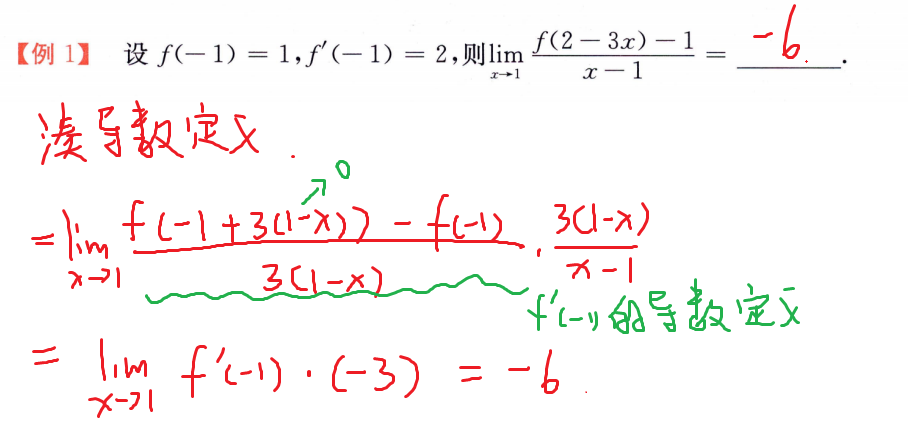 【例 1】 设 f(−1) = 1, f′(−1) = 2, 则 lim_{x→1} \frac{f(2 − 3x) − 1}{x − 1} = -6.
凑导数定义.
= lim_{x→1} \frac{f(-1+3(1-x)) - f(-1)}{3(1-x)} · \frac{3(1-x)}{x-1}
→0
f′(-1)的导数定义
= lim_{x→1} f′(-1)·(-3) = -6.